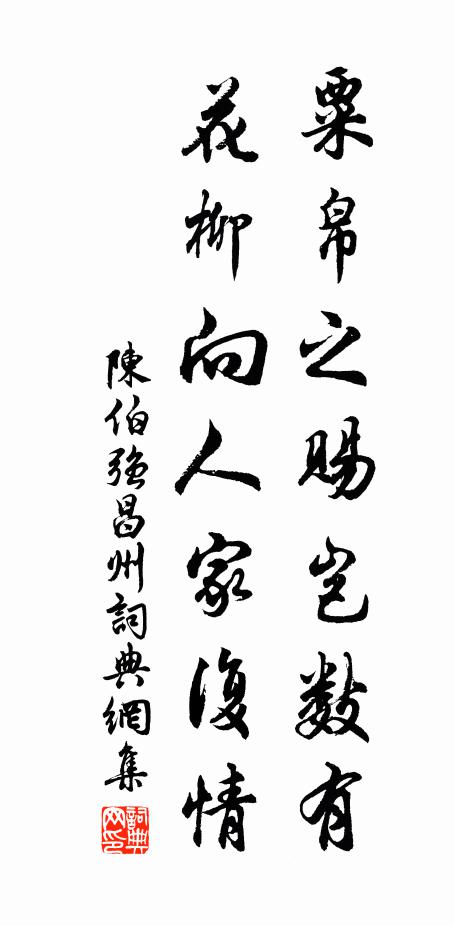 粟帛之賜豈數有
花柳向人家復情
陳伯強昌州詞典網集
詞典网印